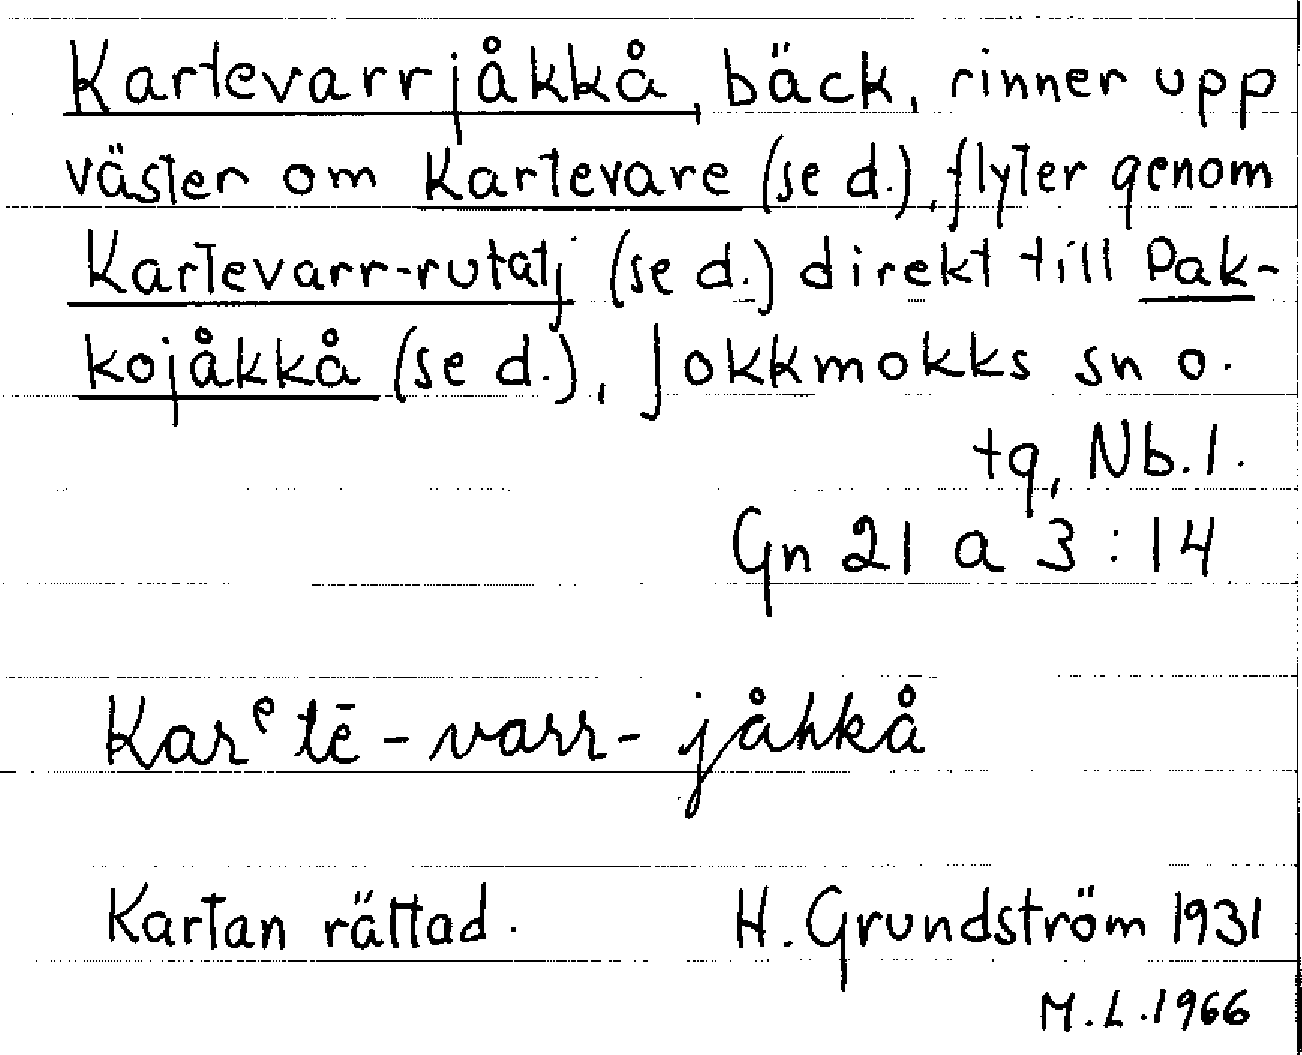 Kartevarrjåkkå, bäck, rinner upp
väster om Kartevare (se d.), flyter genom
Kartevarr-rutatj (se d.) direkt till Pak-
kojåkkå (se d.), Jokkmokks sn o.
tg, Nb. l.
Gn 21 a 3:14
Karᵉtē-varr-jåhkå
Kartan rättad. H. Grundström 1931
M.L. 1966